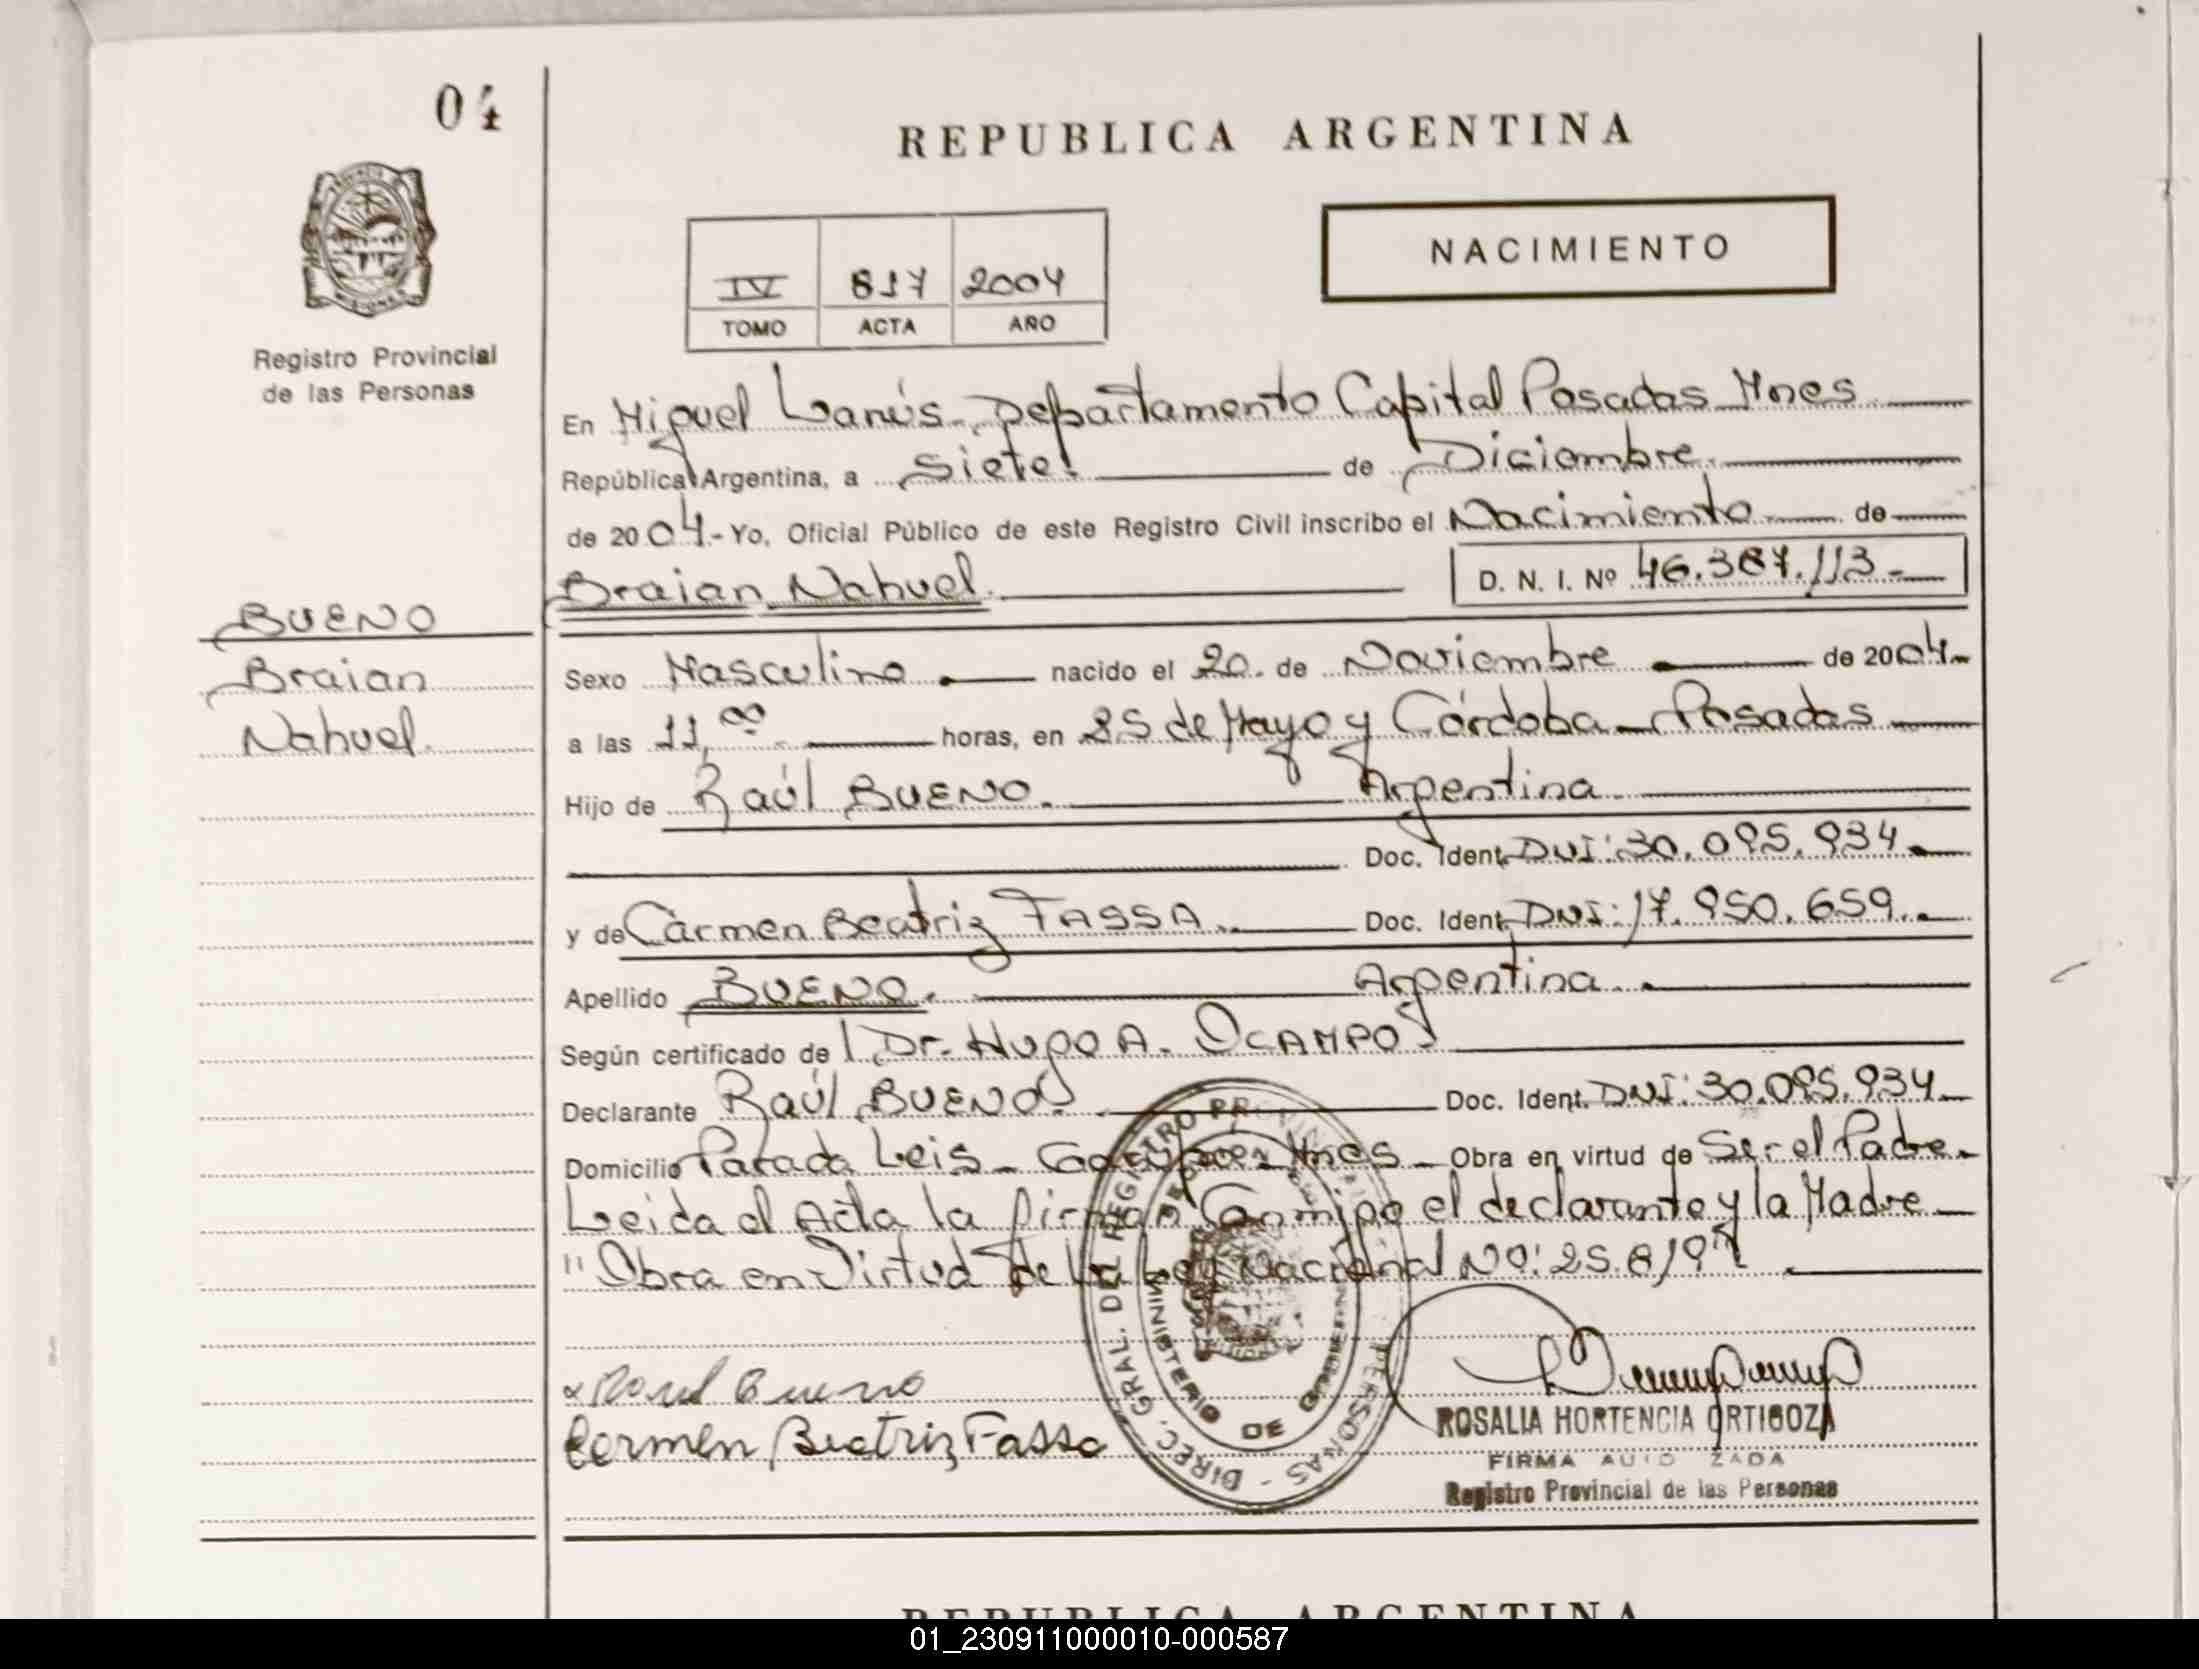 04
REPUBLICA ARGENTINA
NACIMIENTO
IV 817 2004
TOMO ACTA AÑO
Registro Provincial
de las Personas
En Miguel Lanús - Departamento Capital Posadas Mnes
República Argentina, a Siete. de Diciembre.
de 2004.- Yo, Oficial Público de este Registro Civil inscribo el Nacimiento de
Braian Nahuel. D. N. I. Nº 46.387.113.-
BUENO
Braian
Nahuel.
Sexo Masculino nacido el 20. de Noviembre de 2004.
a las 11,00 horas, en 25 de Mayo y Córdoba - Posadas
Hijo de Raúl BUENO. Argentina
Doc. Ident. DNI: 30.095.934.
y de Carmen Beatriz FASSA. Doc. Ident. DNI: 17.950.659.
Apellido BUENO. Argentina.
Según certificado del Dr. Hugo A. OCAMPO
Declarante Raúl BUENO. Doc. Ident. DNI: 30.095.934
Domicilio Parada Leis - Garupá - Mnes - Obra en virtud de Ser el Padre.
Leida el Acta la firman Conmigo el declarante y la Madre
"Obra en Virtud de la Ley Nacional Nº: 25.819"
Raul Bueno
Carmen Beatriz Fassa
DIREC. GRAL. DEL REGISTRO PROVINCIAL DE PERSONAS
MINISTERIO DE GOBIERNO
ROSALIA HORTENCIA ORTIGOZA
FIRMA AUTO ZADA
Registro Provincial de las Personas
REPUBLICA ARGENTINA
01_230911000010-000587